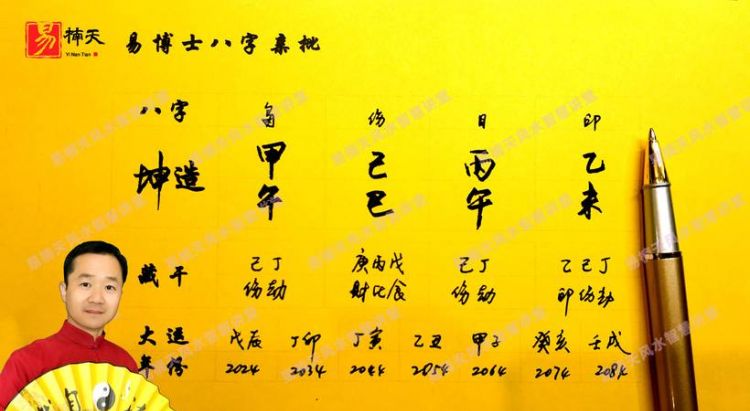 易 楠天 易博士八字亲批
Yi Nan Tian
八字 枭 伤 日 印
坤造 甲 己 丙 乙
午 巳 午 未
藏干 己丁 庚丙戊 己丁 乙己丁
伤劫 财比食 伤劫 印伤劫
大运 戊辰 丁卯 丁寅 乙丑 甲子 癸亥 壬戌
年份 2024 2034 2044 2054 2064 2074 2084
易楠天风水智慧讲堂